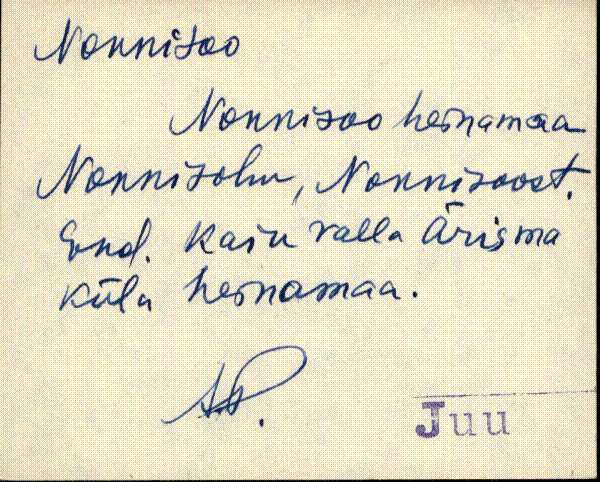 Nonnisoo
Nonnisoo heinamaa
Nonnisohu, Nonnisoost.
End. Kaiu valla Ärisma
küla heinamaa.
Juu